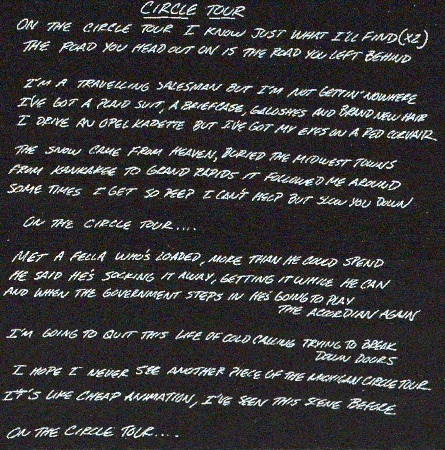 CIRCLE TOUR
ON THE CIRCLE TOUR I KNOW JUST WHAT I'LL FIND (X2)
THE ROAD YOU HEAD OUT ON IS THE ROAD YOU LEFT BEHIND
I'M A TRAVELLING SALESMAN BUT I'M NOT GETTIN' NOWHERE
I'VE GOT A PLAID SUIT, A BRIEFCASE, GALOSHES AND BRAND NEW HAIR
I DRIVE AN OPEL KADETTE BUT I'VE GOT MY EYES ON A RED CORVAIR
THE SNOW CAME FROM HEAVEN, BURIED THE MIDWEST TOWNS
FROM KANKAKEE TO GRAND RAPIDS IT FOLLOWED ME AROUND
SOME TIMES I GET SO DEEP I CAN'T HELP BUT SLOW YOU DOWN
ON THE CIRCLE TOUR....
MET A FELLA WHO'S LOADED, MORE THAN HE COULD SPEND
HE SAID HE'S SOCKING IT AWAY, GETTING IT WHILE HE CAN
AND WHEN THE GOVERNMENT STEPS IN HE'S GOING TO PLAY
THE ACCORDIAN AGAIN
I'M GOING TO QUIT THIS LIFE OF COLD CALLING TRYING TO BREAK
DOWN DOORS
I HOPE I NEVER SEE ANOTHER PIECE OF THE MICHIGAN CIRCLE TOUR
IT'S LIKE CHEAP ANIMATION, I'VE SEEN THIS SCENE BEFORE
ON THE CIRCLE TOUR....